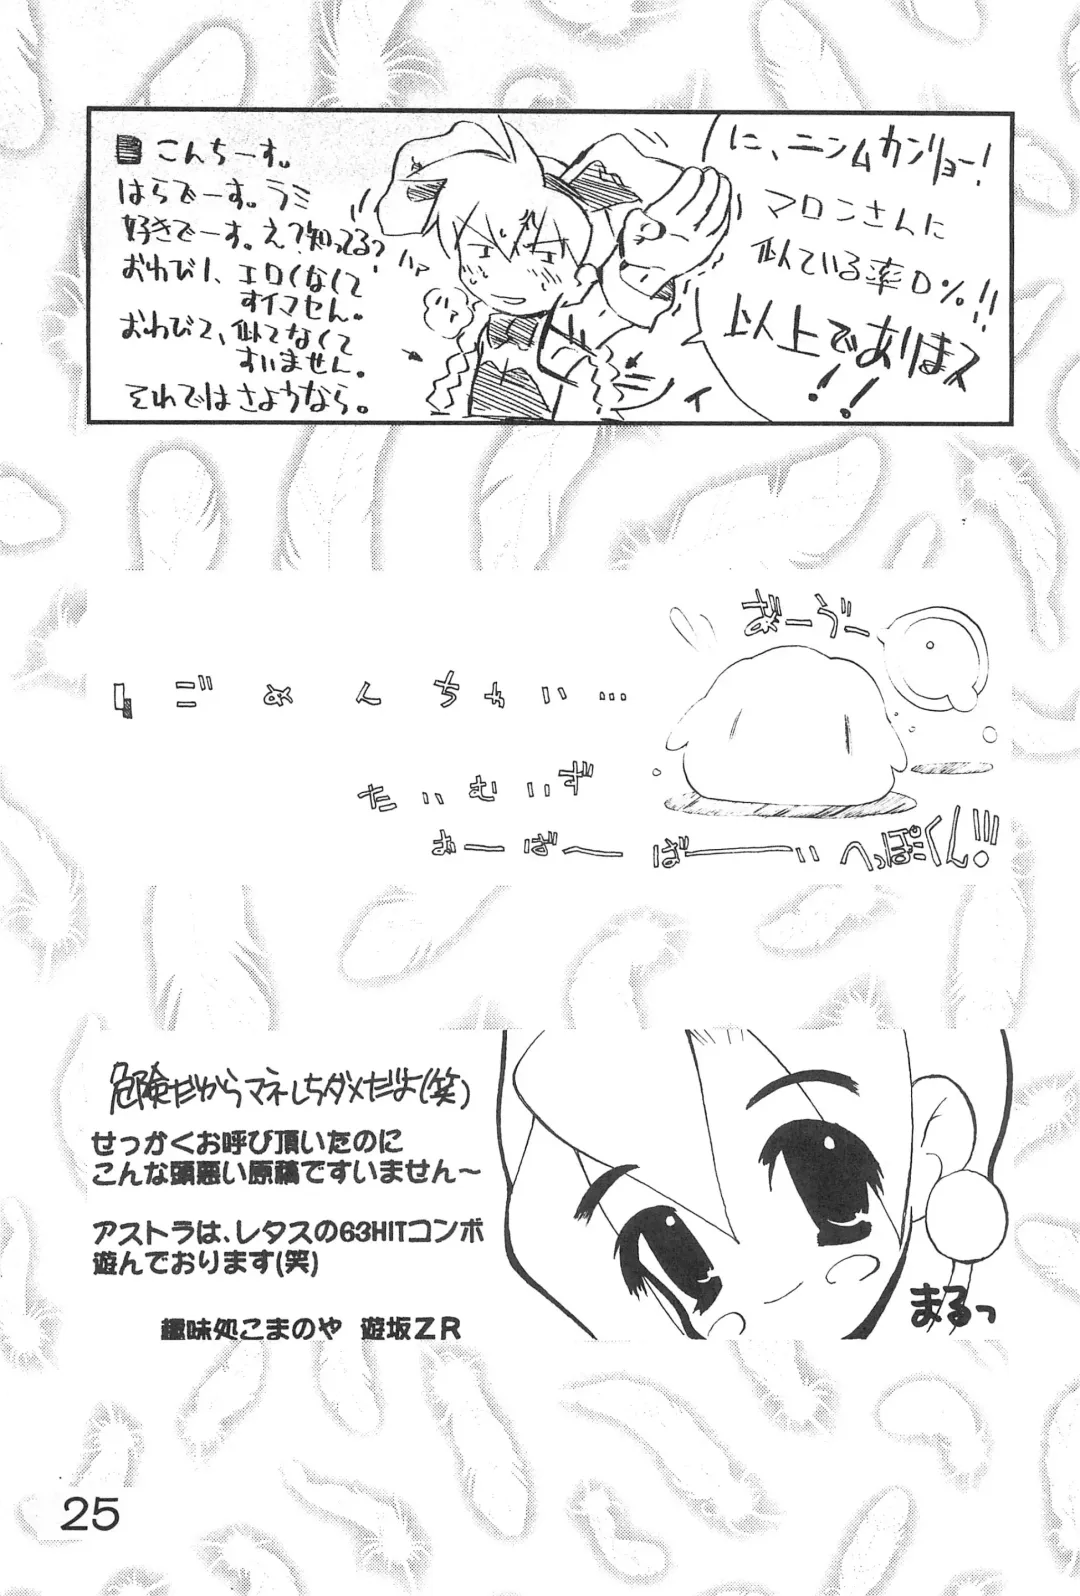 こんちーす。
はらでーす。ラミ
好きでーす。え?知ってる?
おわび1、エロくなくて
すイマせん。
おわび2、似てなくて
すいません。
それではさようなら。
ハァ
に、ニンムカンリョー!
マロンさんに
似ている率0%!!
以上でありまス
!!
ごめんちゃい…
たいむいず
おーばーばーい へっぽくん!!!
危険だからマネしちダメだよ(笑)
せっかくお呼び頂いたのに
こんな頭悪い原稿ですいません~
アストラは、レタスの63HITコンボ
遊んでおります(笑)
趣味処こまのや 遊坂ZR
まるっ
25